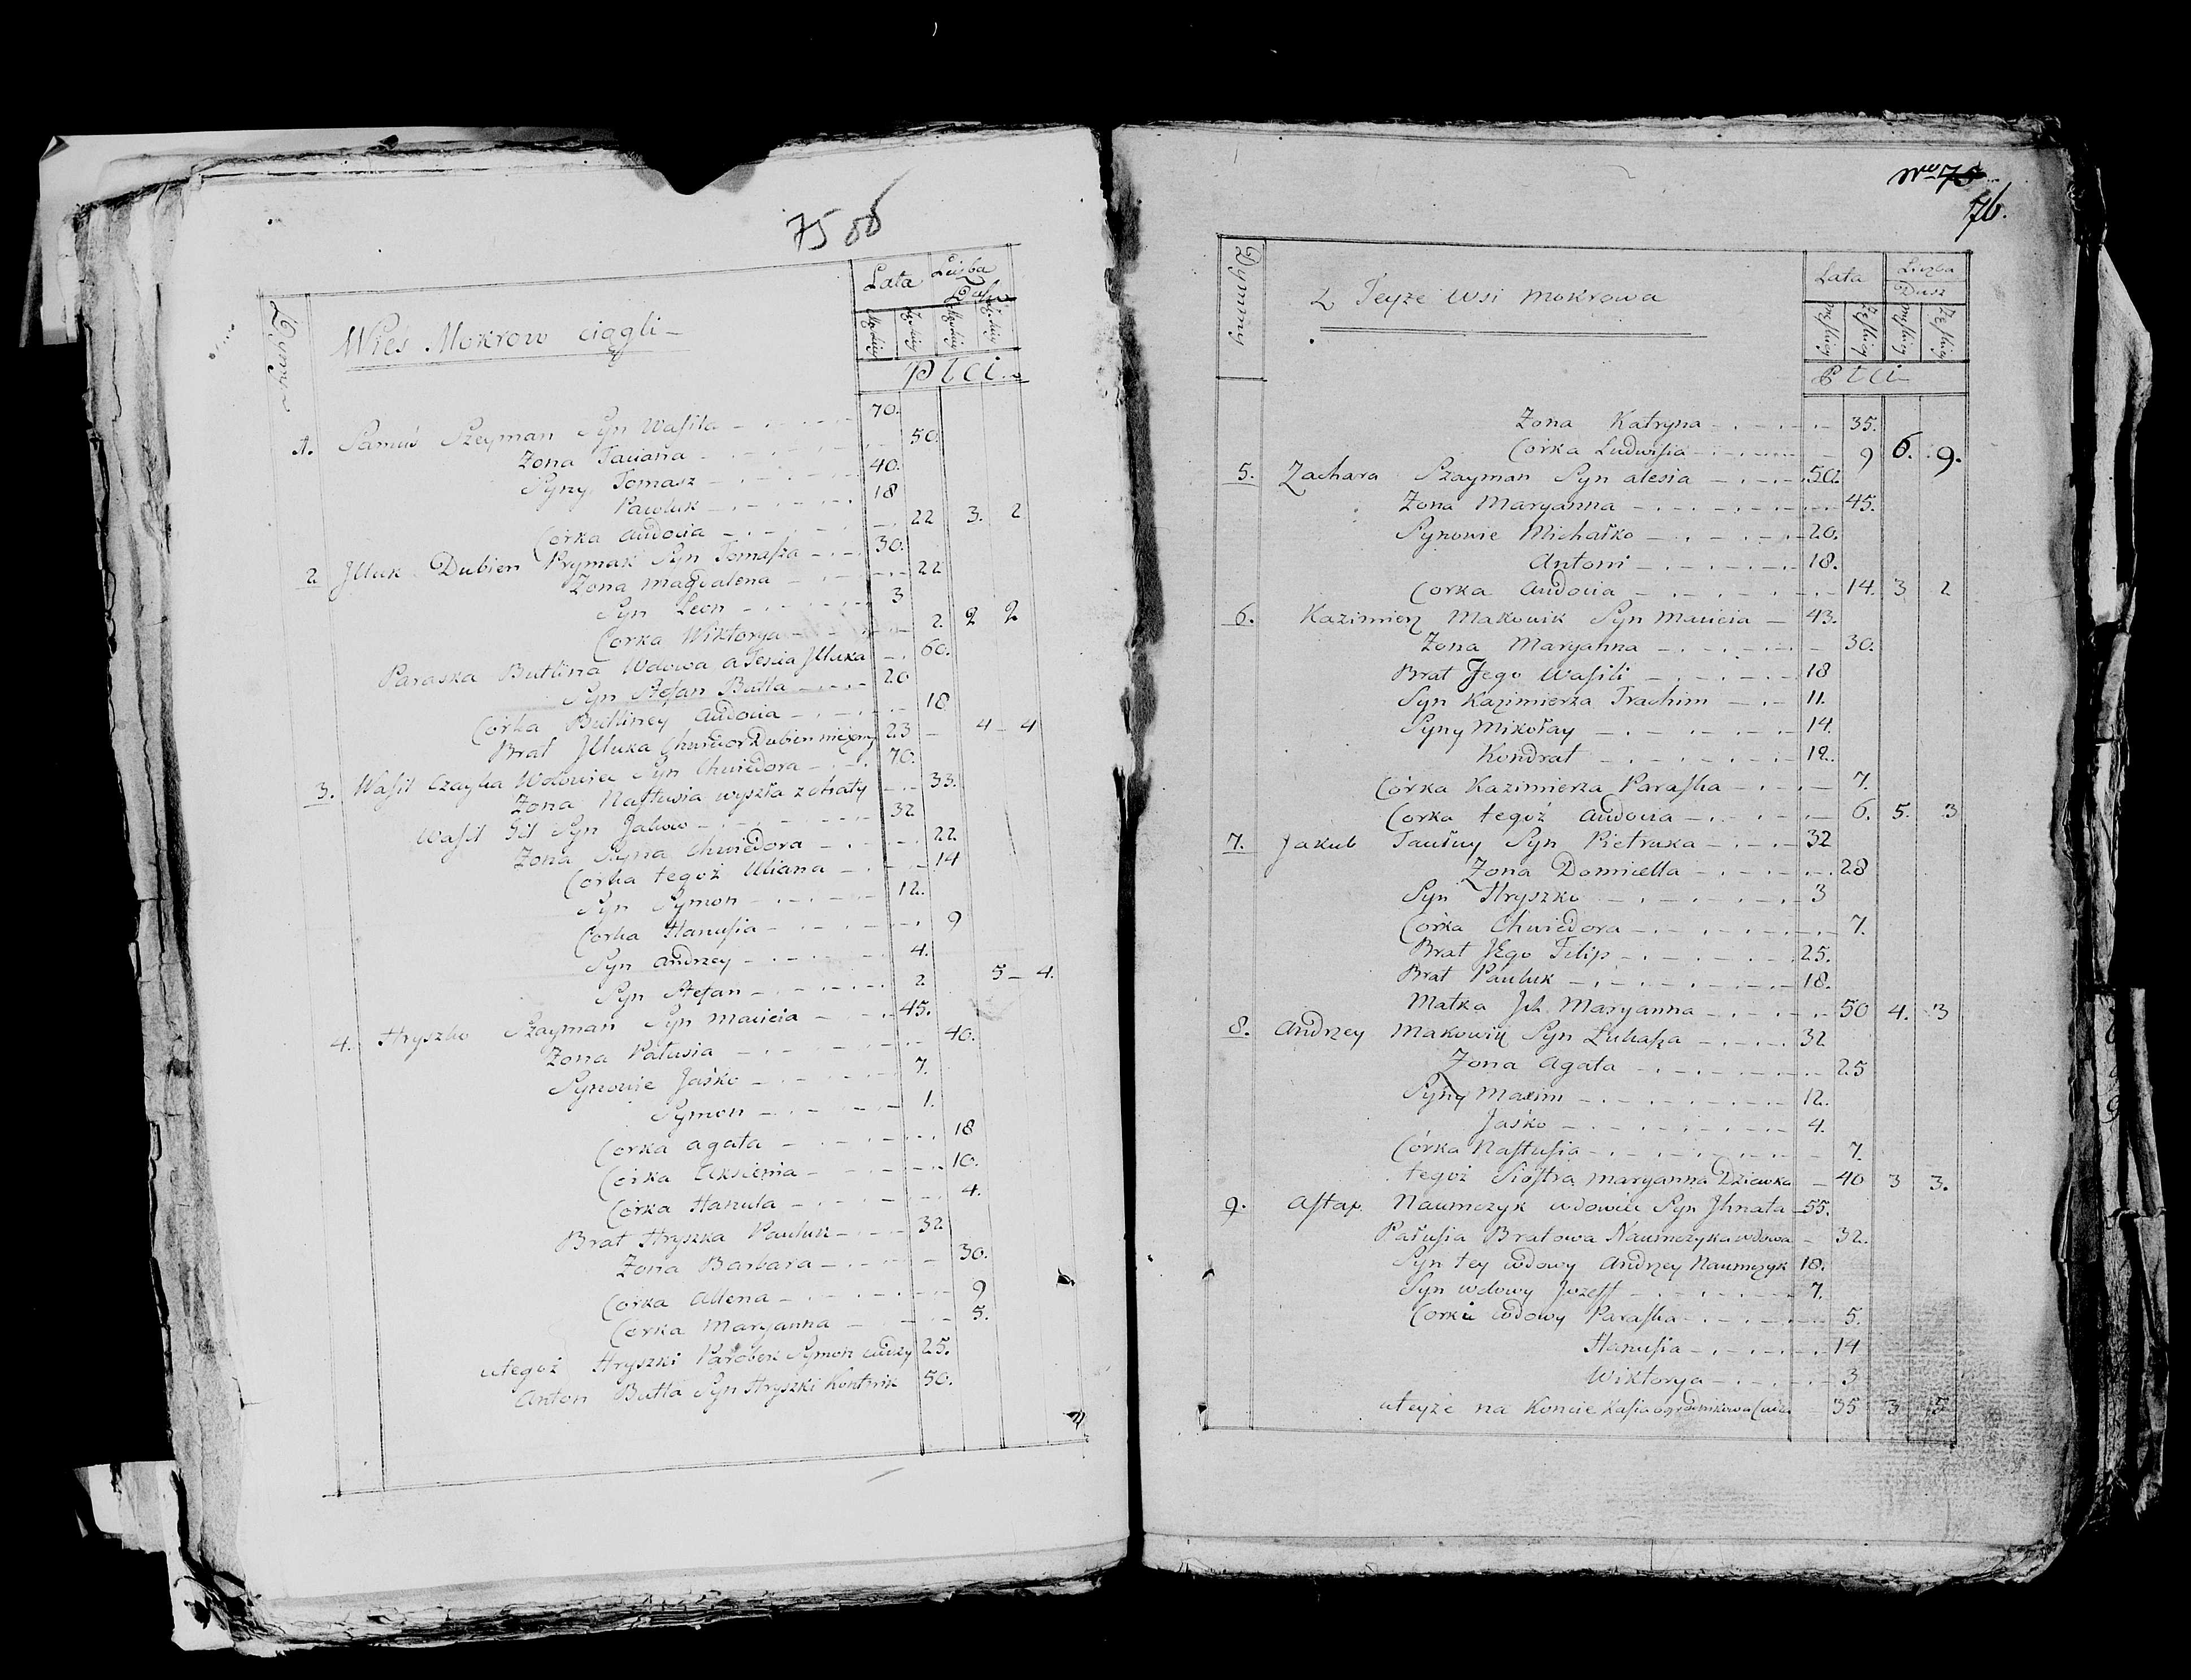 75 об
Wieś Mokrow ciągli –
Lata Liczba Dusz
Płci
1. Samuś Szeyman Syn Wasila 70.
Zona Taciana 50.
Syny Tomasz 40.
Pawluk 18
Corka Audocia 22 3. 2
2 Illuk Dubien Prymak Syn Tomasza 30.
Zona Magdalena 22
Syn Leon 3
Corka Wiktorya 2. 2 2
Paraska Butlina Wdowa a Tescia Illuka 60.
Syn Stefan Butla 20
Córka Butliney Audocia 18
Brat Illuka Chwiedor Dubien 23 – 4 – 4
3. Wasil Czayka Wdowiec Syn Chwiedora 70.
Zona Nastusia wyszła z chaty 33.
Wasil Syn Jakowa 32
Zona Chwiedora 22
Corka tegoż Uliana 14
Syn Symon 12.
Corka Hanusia 9
Syn Andrzey 4.
Syn Stefan 2 5 – 4.
4. Hryszko Szayman Syn Macieia 45.
Zona Pałusia 40.
Synowie Jaśko 7.
Symon 1.
Corka Agata 18
Corka Aksienia 10.
Córka Hanula 4.
Brat Hryszka Pauluk 32
Zona Barbara 30.
Córka Allena 9
Corka Maryanna 5.
u tegoż Hryszki Parobek Symon cudzy 25.
Anton Butla Syn Hryszki Kontnik 50.
Nro 75
76.
Dymmy
2 Teyze Wsi Mokrowa
Lata Liczba Dusz
Płci
Zona Katryna 35.
Corka Ludwisia 9 6. 9.
5. Zachara Szayman Syn Alesia 50.
Zona Maryanna 45.
Synowie Michałko 20.
Antoni 18.
Corka Audocia 14. 3 2
6. Kazimierz Makowik Syn Macieia 43.
Zona Maryanna 30.
Brat Jego Wasili 18
Syn Kazimierza Trachim 11.
Syny Mikołay 14.
Kondrat 12.
Córka Kazimierza Paraska 7.
Corka tegoż Audocia 6. 5. 3
7. Jakub Syn Pietruka 32
Zona Domicella 28
Syn Hryszko 3
Córka Chwiedora 7.
Brat Jego Filip 25.
Brat Pauluk 18.
Matka Ich Maryanna 50 4. 3
8. Andrzey Makowik Syn Łukasza 32
Zona Agata 25
Syny Maxim 12.
Jaśko 4.
Córka Nastusia 7.
tegoż Siostra Maryanna Dziewka 40 3 3.
9. Astap Naumczyk wdowiec Syn Ihnata 55.
Pałusia Bratowa Naumczyka wdowa 32.
Syn tey wdowy Andrzey Naumczyk 18.
Syn wdowy Jozeff 7.
Corki wdowy Paraska 5.
Hanusia 14
Wiktorya 3
u teyże na Koncie Kasia ogrodnikowa 35 3 5